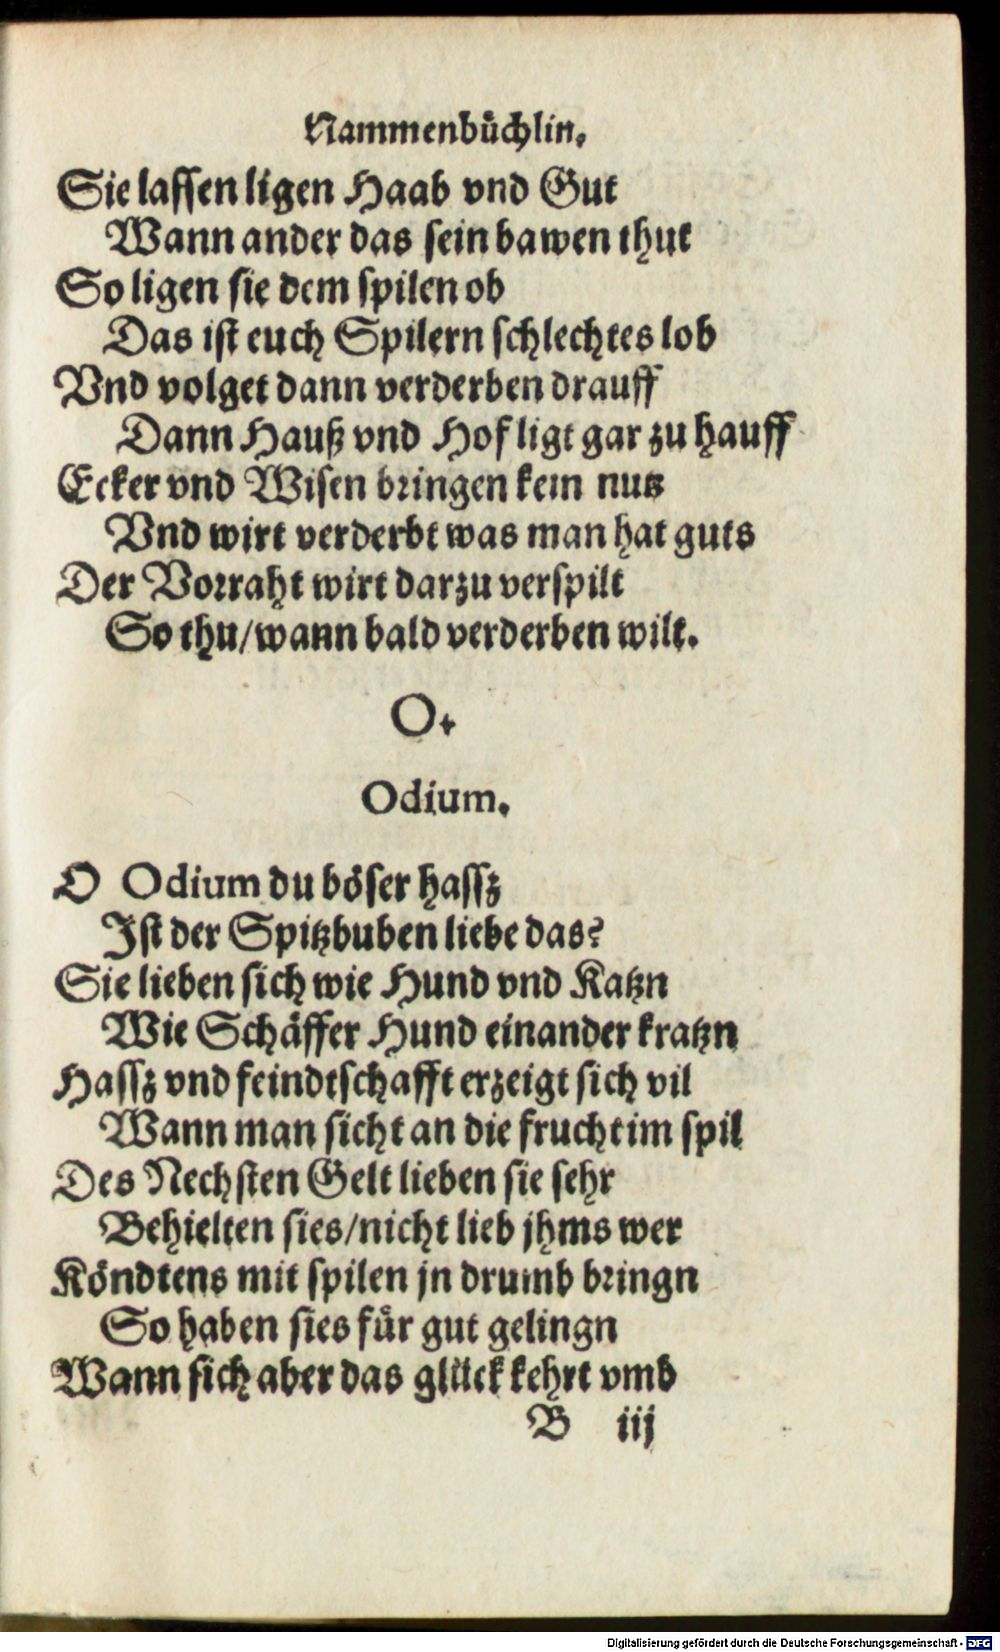 Nammenbuͤchlin.
Sie lassen ligen Haab vnd Gut
Wann ander das sein bawen thut
So ligen sie dem spilen ob
Das ist euch Spilern schlechtes lob
Vnd volget dann verderben drauff
Dann Hauß vnd Hof ligt gar zu hauff
Ecker vnd Wisen bringen kein nutz
Vnd wirt verderbt was man hat guts
Der Vorraht wirt darzu verspilt
So thu/wann bald verderben wilt.
O.
Odium.
O Odium du böser hassz
Ist der Spitzbuben liebe das?
Sie lieben sich wie Hund vnd Katzn
Wie Schäffer Hund einander kratzn
Hassz vnd feindtschafft erzeigt sich vil
Wann man sicht an die frucht im spil
Des Nechsten Gelt lieben sie sehr
Behielten sies/nicht lieb jhms wer
Köndtens mit spilen jn drumb bringn
So haben sies fuͤr gut gelingn
Wann sich aber das gluͤck kehrt vmb
B iij
Digitalisierung gefördert durch die Deutsche Forschungsgemeinschaft - DFG